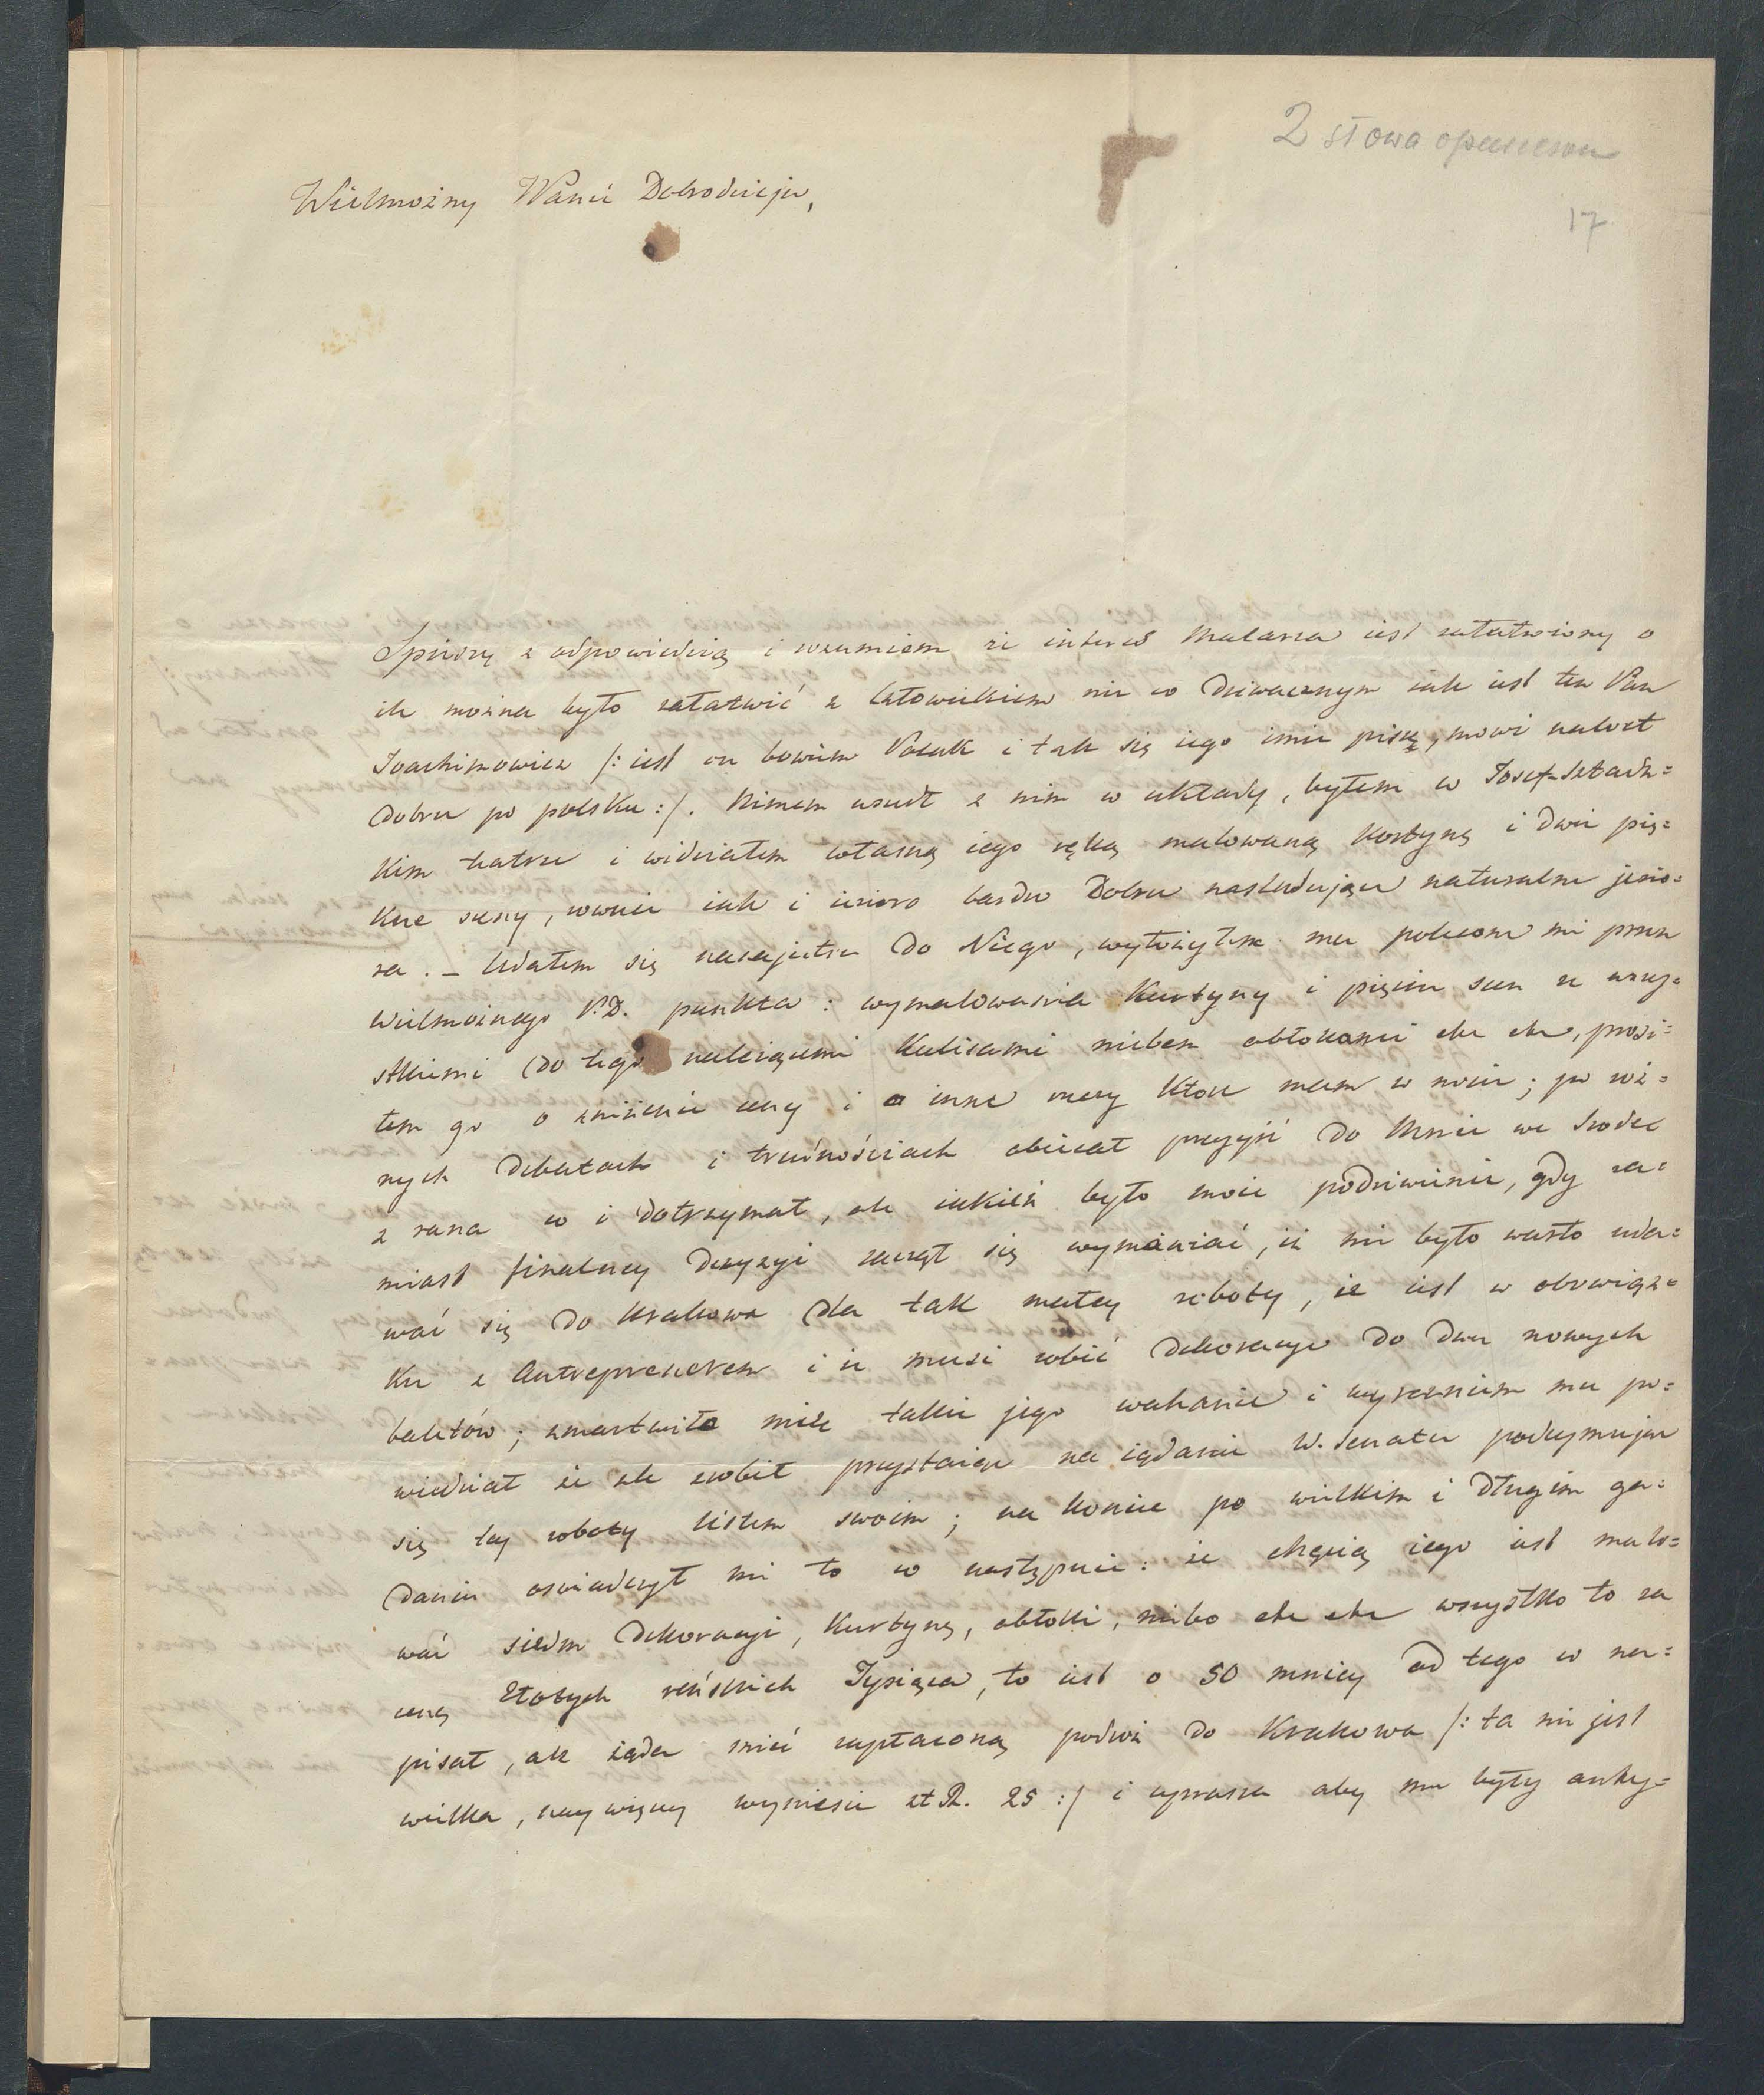 2 słowa opuszczone
17
Wielmożny Panie Dobrodzieju,
Spieszę z odpowiedzią i rozumiem że interes Malarza iest załatwiony o
ile można było załatwić z człowiekiem nie co dziwacznym iak iest ten Pan
Joachimowicz /: iest on bowiem Polak i tak się iego imie pisze, mowi nawet
dobrze po polsku :/. Nimem wszedł z nim w układy, byłem w Josef-Sztadz=
kim teatrze i widziałem własną iego ręką malowaną Kortynę i dwie pię=
kne sceny, rownie iak i iezioro bardzo dobrze nasladujące naturalne jezio=
ra. – Udałem się nazajutrz do Niego, wyłożyłem mu polecone mi przez
Wielmożnego P.D. punkta : wymalowania Kurtyny i pięciu scen z wszy=
stkiemi do tego należącemi Kulisami niebem obłokami etc etc, prosi=
łem go o zniżenie ceny i o inne rzeczy ktore mam w nocie ; po roż=
nych debatach i trudnościach obiecał przyjść do Mnie we Srodę
z rana co i dotrzymał, ale iakież było moie podziwienie, gdy za=
miast finalney decyzyi zaczął się wymawiać, iż nie było warto uda=
wać się do Krakowa dla tak małey roboty, że iest w obowiąz=
ku z Antreprenerem i że musi robić dekoracye do dwu nowych
baletów ; zmartwiło mię takie jego wahanie i wyrzekłem mu po=
wiedział że źle zrobił przystaiąc na żądanie W. Senatu podeymując
się tey roboty listem swoim ; na koniec po wielkim i długim ga=
daniu oświadczył mi to co następuie : że chęcią iego iest malo=
wać siedm dekoracyi, Kurtynę, obłoki, niebo etc etc wszystko to za
cenę Złotych reńskich Tysiąca, to iest o 50 mniey od tego co na=
pisał, ale żąda mieć zapłaconą podroż do Krakowa /: ta nie jest
wielka, naywięcey wyniesie zł R. 25 :/ i uprasza aby mu były anty=